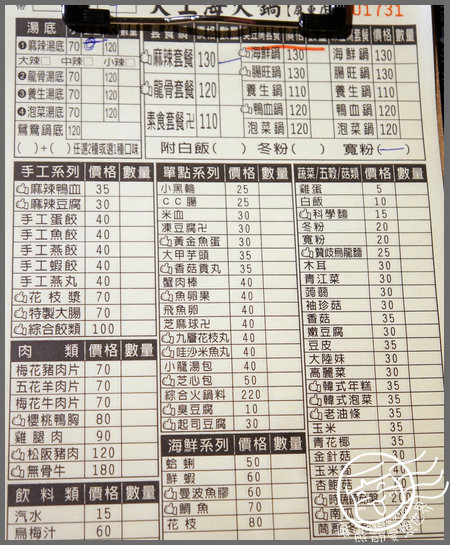 大上海火鍋
01731
湯底 價格 數量
❶麻辣湯底 70 120
大辣[ ] 中辣[ ] 小辣[ ]
❷龍骨湯底 70 120
❸養生湯底 70 120
❹泡菜湯底 70 120
鴛鴦鍋底 120
( )+( )任選2種或選1種口味
套餐 價格 數量
麻辣套餐 130
龍骨套餐 120
素食套餐卍 110
價格
海鮮鍋 130
腸旺鍋 120
養生鍋 110
鴨血鍋 120
泡菜鍋 110
價格 數量
海鮮鍋 130
腸旺鍋 120
養生鍋 110
鴨血鍋 120
泡菜鍋 110
附白飯( ) 冬粉( ) 寬粉( )
手工系列 價格 數量
麻辣鴨血 35
麻辣豆腐 30
手工蛋餃 40
手工魚餃 40
手工燕餃 40
手工蝦餃 40
手工燕丸 40
花枝漿 70
特製大腸 70
綜合餃類 100
肉類 價格 數量
梅花豬肉片 70
五花羊肉片 70
梅花牛肉片 70
櫻桃鴨胸 80
雞腿肉 90
松阪豬肉 120
無骨牛 180
飲料類 價格 數量
汽水 15
烏梅汁 60
單點系列 價格 數量
小黑輪 25
CC腸 25
米血 30
凍豆腐卍 30
黃金魚蛋 30
大甲芋頭 35
香菇貢丸 35
蟹肉棒 40
魚卵果 40
飛魚卵 40
芝麻球卍 40
九層花枝丸 40
哇沙米魚丸 40
小龍湯包 40
芝心包 50
綜合火鍋料 220
臭豆腐 10
起司豆腐 30
海鮮系列 價格 數量
蛤蜊 50
鮮蝦 60
曼波魚膠 60
鯛魚 70
花枝 80
蔬菜/五穀/菇類 價格 數量
雞蛋 5
白飯 10
科學麵 15
冬粉 20
寬粉 20
贊岐烏龍麵 25
木耳 30
青江菜 30
蒟蒻 30
袖珍菇 30
香菇 35
嫩豆腐 30
豆皮 35
大陸妹 30
高麗菜 30
韓式年糕 35
韓式泡菜 35
老油條 35
玉米 35
青花椰 35
金針菇 30
玉米
杏鮑菇